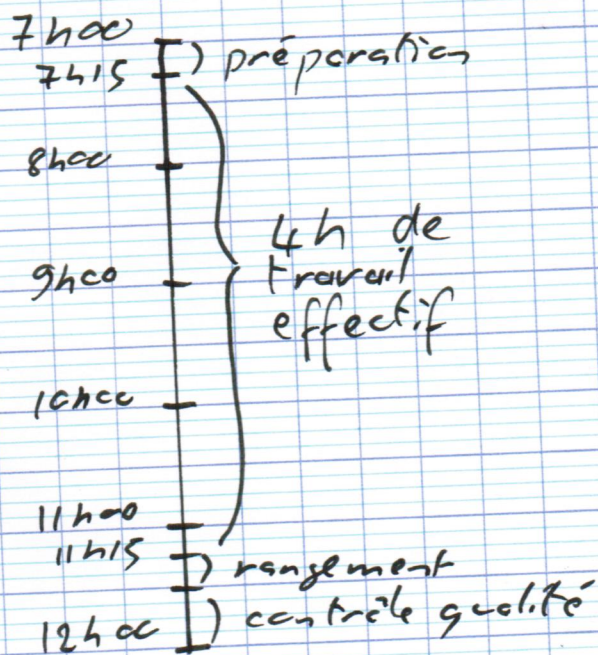 7h00
7h15 préparation
8h00
4h de
9h00 travail
effectif
10h00
11h00
11h15
rangement
12h00 contrôle qualité